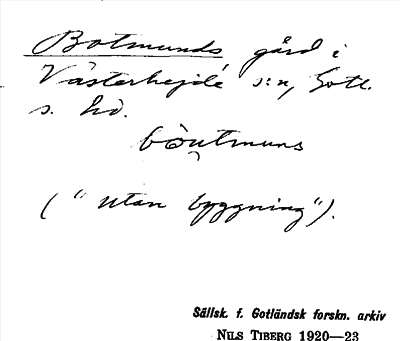 Botmunds gård i
Västerhejde s:n, Gotl.
s. hd.
bωutmuns
("utan byggning").
Sällsk. f. Gotländsk forskn. arkiv
NILS TIBERG 1920—23